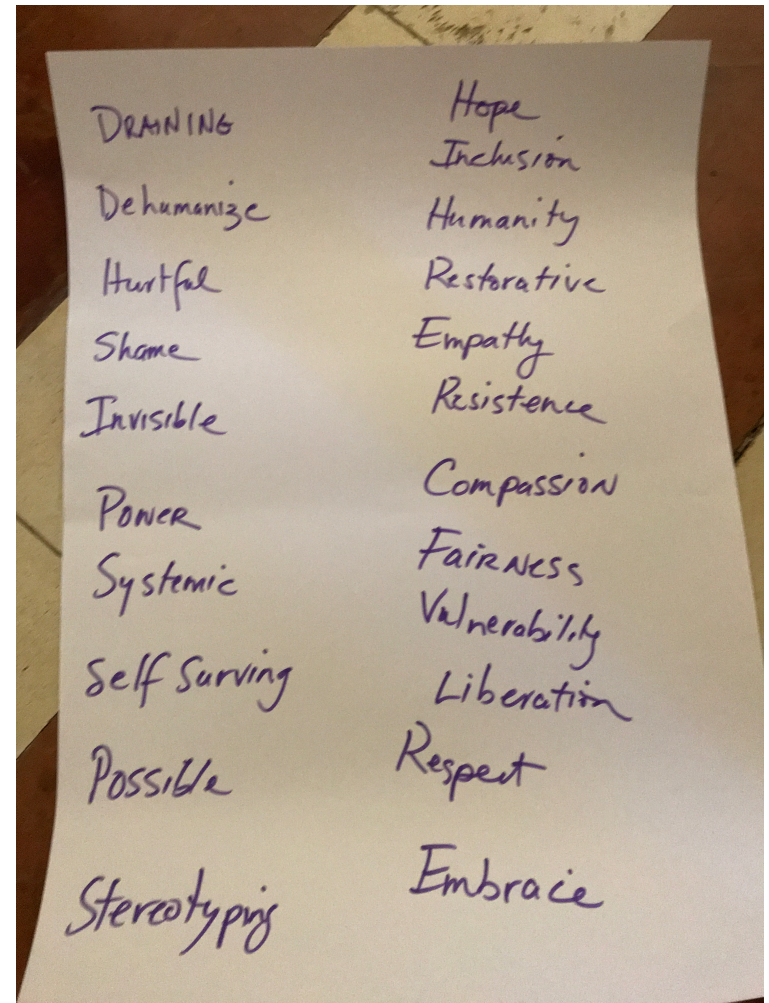 DRAINING
Dehumanize
Hurtful
Shame
Invisible
POWER
Systemic
Self Surving
Possible
Stereotyping
Hope
Inclusion
Humanity
Restorative
Empathy
Resistence
COMPASSION
FAIRNESS
Vulnerability
Liberation
Respect
Embrace